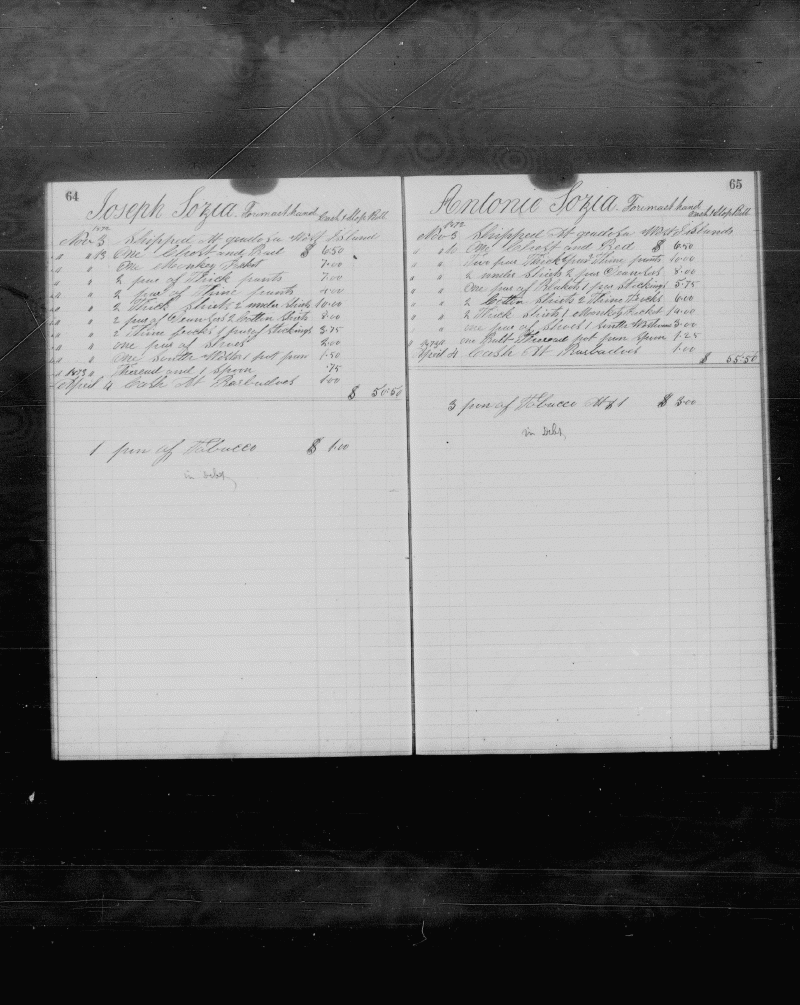 64
Joseph Sozia. Foremast hand Cash & Slop Bill
1872
Nov 3 Shipped At guadofa West Island
" " 13 One Chest and Bed $ 6.50
" " One Monkey Jacket 7.00
" " 2 pear of Thick pants 7.00
" " 2 pear of Thine pants 4.00
" " 2 Thick Shirts 2 under Shirts 10.00
" " 2 pear of Drawers 2 Cotton Shirts
" " 2 Thine frocks 1 pear of Stockings 3.75
" " one pear of Shoes 2.00
" " One Souther 1 pot pan 1.50
" 1873 " Thread and 1 Spoon .75
April 4 Cash At Barbadoes
$ 50.50
1 pun of Tobacco $ 1.00
in Debt,
65
Antonie Sozia. Foremast hand Cash & Slop Bill
1872
Nov 3 Shipped At guadofa West Islands
" " One Chest and Bed $ 6.50
" " Two pear Thick pear Thine pants 10.00
" " 2 under Shirts 2 pear Drawers
" " One pear of Blankets 1 pear Stockings 5.75
" " 2 Cotton Shirts 2 Thine Frocks 6.00
" " 2 Thick Shirts 1 Monkey Jacket
" " one pear of Shoes 1 Souther 3.00
" 1873 one Belt Thread pot pan Spoon 1.25
April 4 Cash At Barbadoes 1.00
$ 55.50
3 pun of Tobacco At $1 $ 3.00
in Debt,